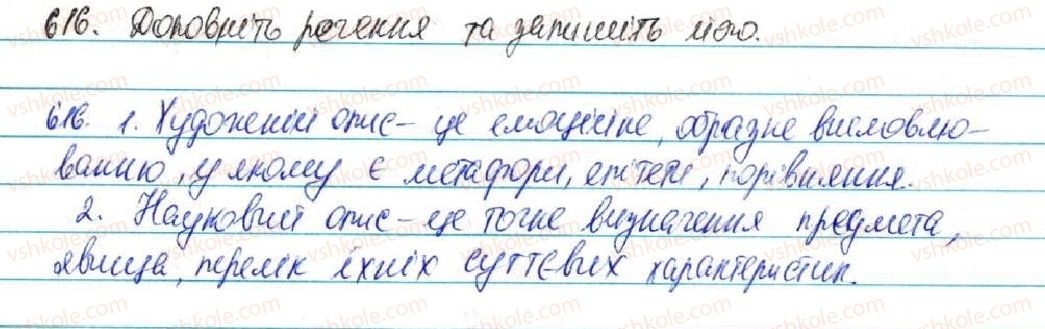 616. Доповніть речення та запишіть його.
616. 1. Художній опис – це емоційне, образне висловлю-
ванню, у якому є метафори, епітети, порівняння.
2. Науковий опис – це точне визначення предмета,
явища, перелік їхніх суттєвих характеристик.